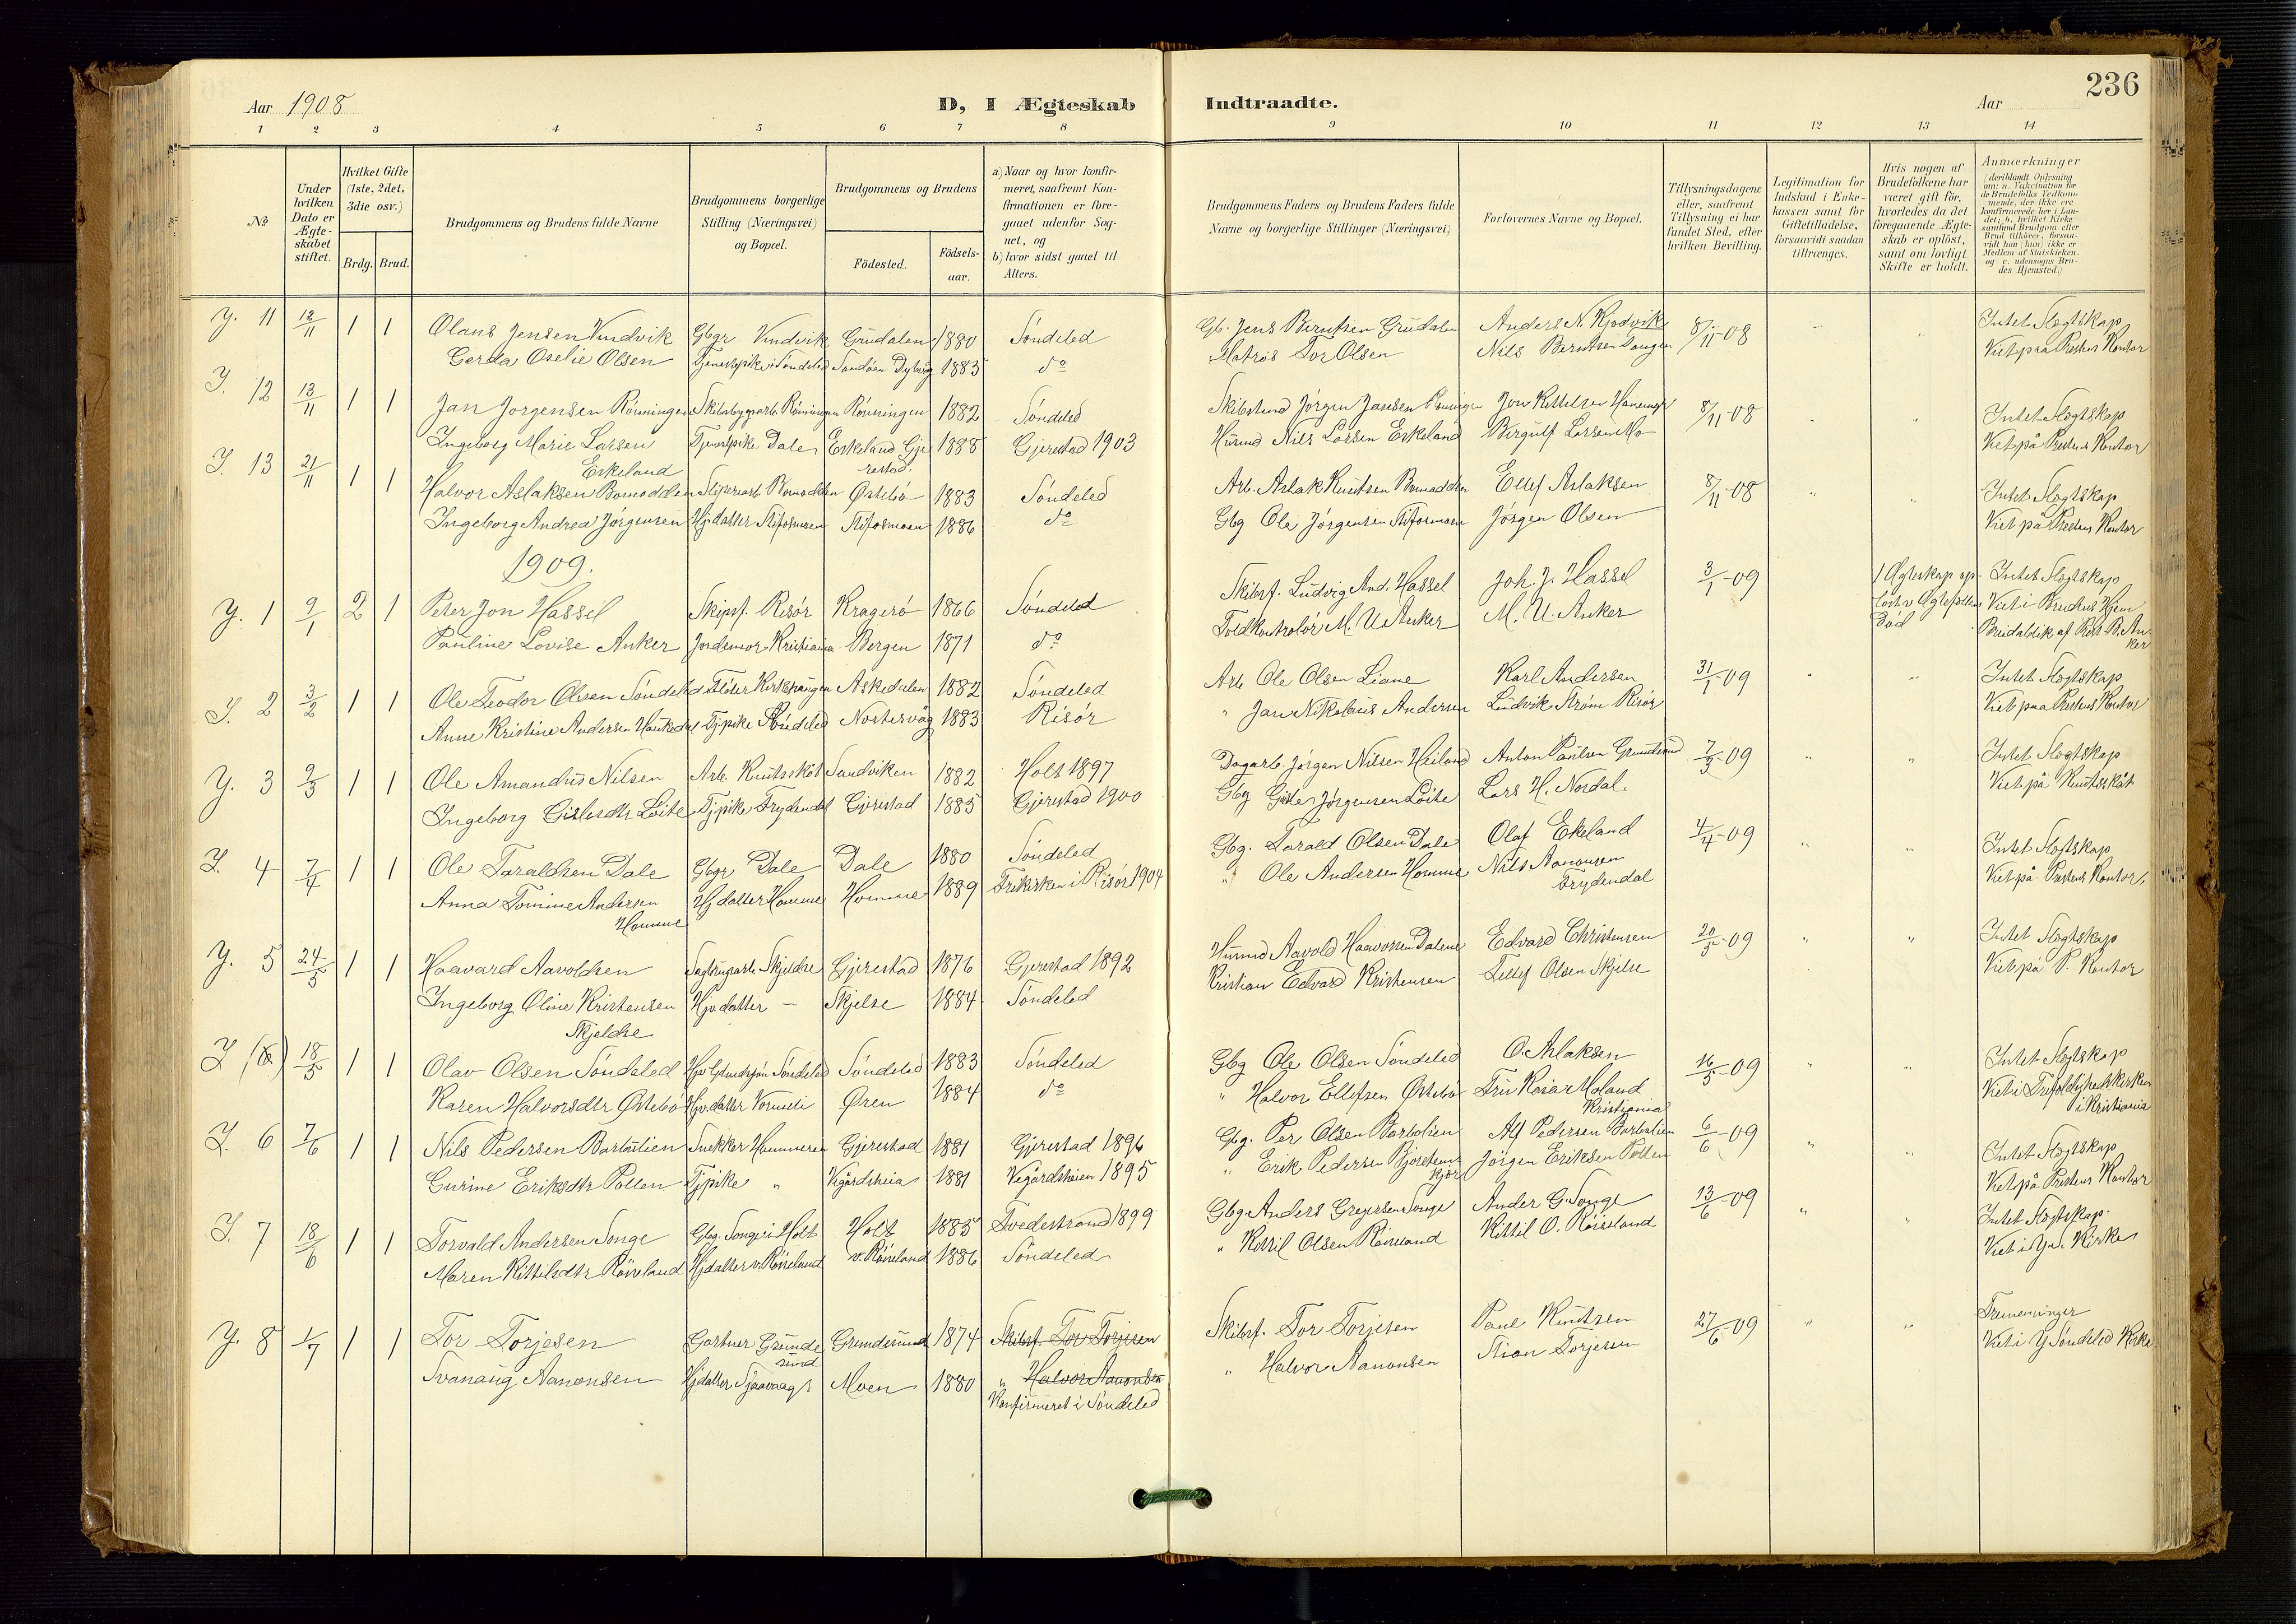 236
Aar 1908
D, I Ægteskab Indtraadte.
Aar
1 2 3 4 5 6 7 8 9 10 11 12 13 14
No
Under hvilken Dato er Ægteskabet stiftet.
Hvilket Gifte (1ste, 2det, 3die osv.)
Brdg. Brud.
Brudgommens og Brudens fulde Navne
Brudgommens borgerlige Stilling (Næringsvei) og Bopæl.
Brudgommens og Brudens
Födested.
Födselsaar.
a) Naar og hvor konfirmeret, saafremt Konfirmationen er foregaaet udenfor Sognet, og
b) hvor sidst gaaet til Alters.
Brudgommens Faders og Brudens Faders fulde Navne og borgerlige Stillinger (Næringsvei)
Forlovernes Navne og Bopæl.
Tillysningsdagene eller, saafremt Tillysning ei har fundet Sted, efter hvilken Bevilling.
Legitimation for Indskud i Enkekassen samt for Giftetilladelse, forsaavidt saadan tiltrænges.
Hvis nogen af Brudefolkene har været gift för, hvorledes da det foregaaende Ægteskab er oplöst, samt om lovligt Skifte er holdt.
Anmærkninger (deriblandt Oplysning om: a. Vakcination for de Brudefolks Vedkommende, der ikke ere konfirmerede her i Landet; b. hvilket Kirkesamfund Brudgom eller Brud tilhörer, forsaavidt han (hun) ikke er Medlem af Statskirken, og c. udensogns Brudes Hjemsted.)
Y. 11 12/11 1 1 Olans Jensen Vindvik Gbgr Vindvik Grudalen 1880 Söndeled Gb. Jens Berntsen Grudalen Anders N. Kjødvik 8/11-08 Intet Slegtskap
Gerda Oselie Olsen Tjenestepike i Söndeled Sandøen Dybvåg 1883 do Matros Tor Olsen Nils Berntsen Songen Viet paa Prestens Kontor
I. 12 13/11 1 1 Jan Jorgensen Rönningen Skibsbyggarb. Rönningen Rönningen 1882 Söndeled Skibstmd Jörgen Jansen Rönningen Jon Kittelsen 8/11-08 Intet Slegtskap
Ingeborg Marie Larsen Eskeland Tjenestpike Dale Eskeland Gjerestad. 1888 Gjerestad 1903 Husmd Nils Larsen Eskeland Bergulf Larsen Mo Viet på Prestens Kontor
I. 13 21/11 1 1 Halvor Aslaksen Bomodden Sliperiarb. Bomodden Østebö 1883 Söndeled Arb. Aslak Knutsen Bomodden Ellef Aslaksen 8/11-08 Intet Slegtskap
Ingeborg Andrea Jörgensen Hj. datter Stifosmoen Stifosmoen 1886 do Gbg Ole Jörgensen Stifosmoen Jörgen Olsen Viet på Prestens Kontor
1909.
Y. 1 9/1 2 1 Peter Jon Hassel Skipsf. Risör Kragerö 1866 Söndeled Skibsf. Ludvig And. Hassel Joh. J. Hassel 3/1-09 1 Ægteskap opløst v Ægtefellens Död Intet Slegtskap
Pauline Lovise Anker Jordemor Kristiania Bergen 1871 do Toldkontrolör M. U. Anker M. U. Anker Viet i Brudens Hjem Breidablik af Res. B. Anker
I. 2 3/2 1 1 Ole Teodor Olsen Söndeled Flöter Kirketangen Askedalen 1882 Söndeled Arb Ole Olsen Liane Karl Andersen 31/1-09 Intet Slegtskap
Anne Kristine Andersen Haukedal Tjpike Söndeled Nortevåg 1883 Risör " Jan Nikolaus Andersen Ludvik Ström Risör Viet paa Prestens Kontor
Y. 3 9/3 1 1 Ole Amandus Nilsen Arb. Knutsskåt Sandviken 1882 Holt 1897 Dagarb. Jörgen Nilsen Heiland Anton Paulsen Grundesund 7/3-09 Intet Slegtskap
Ingeborg Gislesdtr Löite Tjpike Frydendal Gjerestad 1885 Gjerestad 1900 Gbg Gisle Jörgensen Löite Lars H. Nordal. Viet på Knutsskåt
I. 4 7/4 1 1 Ole Taraldsen Dale Gbgr Dale Dale 1880 Söndeled Gbg. Tarald Olsen Dale Olaf Ekeland 4/4-09 Intet Slegtskap
Anna Tomine Andersen Homme Hj datter Homme Homme 1889 Frikirken i Risör 1904 " Ole Andersen Homme Nils Aanonsen Frydendal Viet på Prestens Kontor.
Y. 5 24/5 1 1 Haavard Aavoldsen Sagbrugsarb Skjeldse Gjerestad 1876 Gjerestad 1892 Husmd Aavold Haavorsen Dalene Edvard Christensen 20/5-09 Intet Slegtskap
Ingeborg Oline Kristensen Skjeldse Hjv datter - Skjelse 1884 Söndeled Kristian Edvard Kristensen Tellef Olsen Skjelse Viet på P. Kontor
I (6) 18/5 1 1 Olav Olsen Söndeled Söndeled Söndeled 1883 Söndeled Gbg Ole Olsen Söndeled O. Aslaksen 16/5-09 Intet Slegtskap
Karen Halvorsdtr Østebö Hjv. datter Vormeli Øren 1884 do " Halvor Ellefsen Østebö Fru Kaia Moland Kristiania Viet i Trefoldighedskirken i Kristiania
I. 6 7/6 1 1 Nils Pedersen Barbulien Snekker Hammeren Gjerestad 1881 Gjerestad 1896 Gbg. Per Olsen Barbolien Alf Pedersen Barbulien 6/6-09 Intet Slegtskap
Gurine Eriksdtr Pollen Tjpike " Vigårdsheia 1881 Vegårdsheien 1895 " Erik Pedersen Jörgen Eriksen Pollen Viet på Prestens Kontor
I. 7 18/6 1 1 Torvald Andersen Songe Gbg. Songe i Holt Holt 1885 Tvedestrand 1899 Gbg. Anders Gregersen Songe Ander G. Songe 13/6-09 Intet Slegtskap.
Maren Kittilsdtr Röisland Hjdatter v. Röisland v. Röisland 1886 Söndeled " Kittil Olsen Röisland Kittil O. Röisland Viet i Kirke
Y. 8 1/7 1 1 Tor Torjesen Gartner Grundesund Grundesund 1874 Skibsf. Tor Torjesen Skibsf. Tor Torjesen Paul Knutsen 27/6-09 Tremenninger
Svanaug Aanonsen Hjdatter Sjaavaag Moen 1880 " Halvor Aanonsen Konfirmeret i Söndeled " Halvor Aanonsen Stian Torjesen Viet i Y Söndeled Kirke